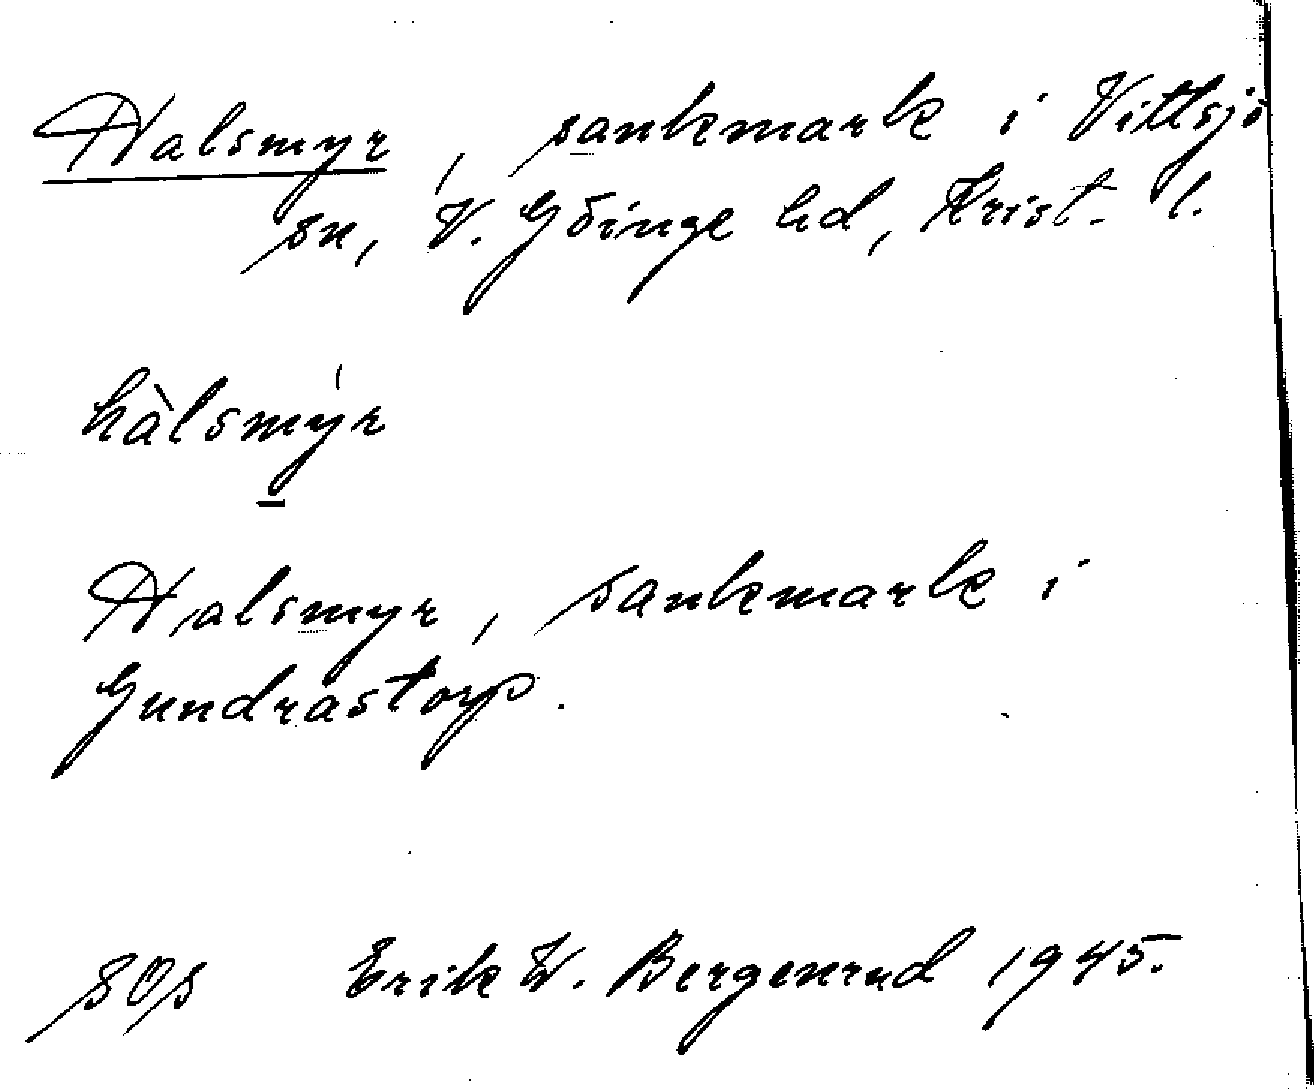 Halsmyr, sankmark i Vittsjö
sn, V. Göinge hd, Krist. l.
hàlsmýr
Halsmyr, sankmark i
Gundrastorp.
SOS Erik W. Bergenrud 1945.